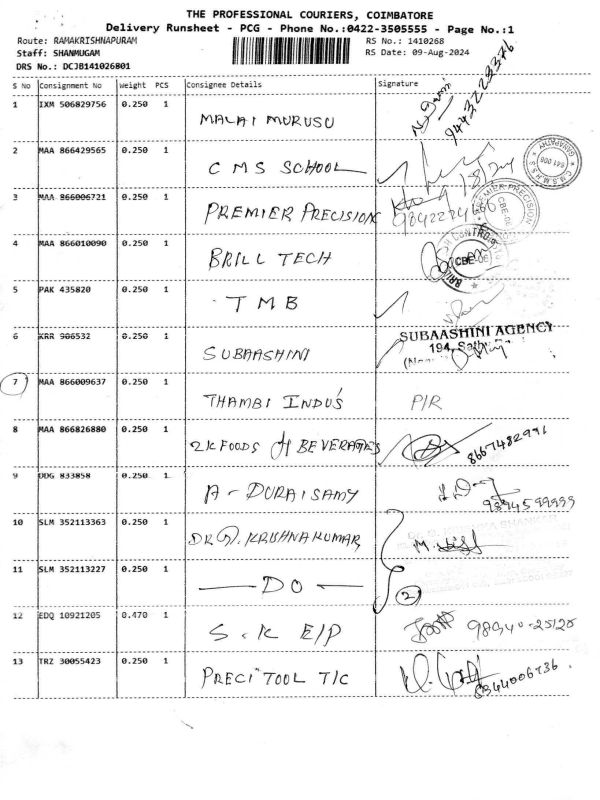 THE PROFESSIONAL COURIERS, COIMBATORE
Delivery Runsheet - PCG - Phone No.:0422-3505555 - Page No.:1
Route: RAMAKRISHNAPURAM
RS No.: 1410268
Staff: SHANMUGAM
RS Date: 09-Aug-2024
DRS No.: DCJB141026801
S No Consignment No Weight PCS Consignee Details Signature
1 IXM 506829756 0.250 1 MALAI MURUSU 9443229376
2 MAA 866429565 0.250 1 CMS SCHOOL
3 MAA 866006721 0.250 1 PREMIER PRECISION
PREMIER PRECISION
4 MAA 866010090 0.250 1 BRILL TECH
CBE
5 PAK 435820 0.250 1 TMB
6 KRR 906532 0.250 1 SUBAASHINI
SUBAASHINI AGENCY
194,
7 MAA 866009637 0.250 1 THAMBI INDUS P/R
8 MAA 866826880 0.250 1 2K FOODS BEVERAGES 8667482991
9 UDG 833858 0.250 1 A-DURAISAMY 9894599999
10 SLM 352113363 0.250 1 DR KRISHNAKUMAR
11 SLM 352113227 0.250 1 DO 2
12 EDQ 10921205 0.470 1 S.K E/P 98940-25125
13 TRZ 30055423 0.250 1 PRECI TOOL T/C 8344006736